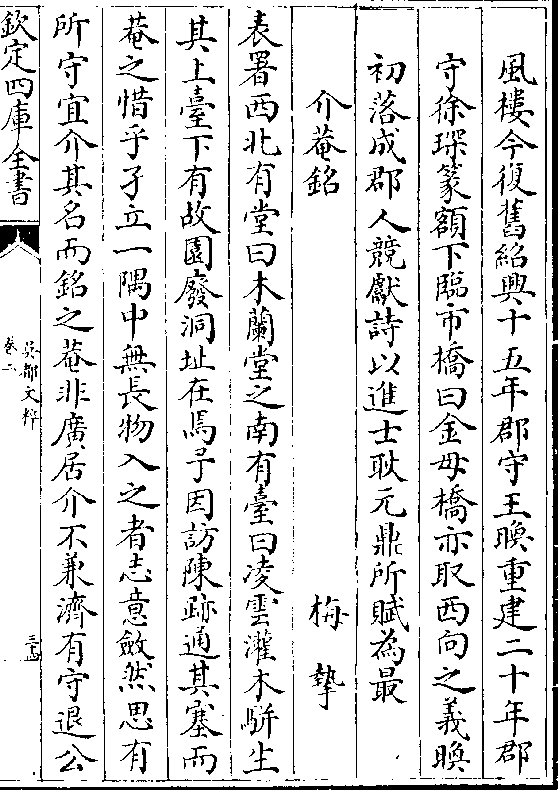 風樓今復舊紹興十五年郡守王㬇重建二十年郡
守徐琛篆額下臨市橋曰金母橋亦取西向之義㬇
初落成郡人競獻詩以進士耿元鼎所賦為最
介菴銘 梅摯
表署西北有堂曰木蘭堂之南有臺曰凌雲灌木駢生
其上臺下有故園廢洞址在焉予因訪陳跡通其塞而
菴之惜乎孑立一隅中無長物入之者志意斂然思有
所守宜介其名而銘之菴非廣居介不兼濟有守退公
欽定四庫全書
吳都文粹
卷二